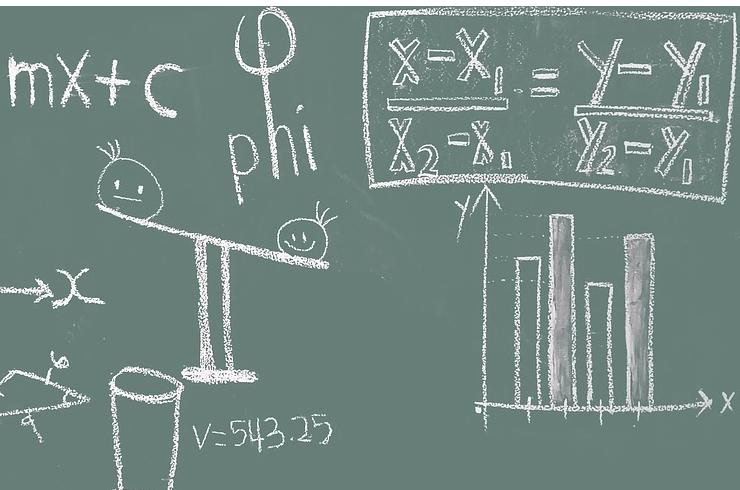 mx+c
φ
phi
X-X₁ / X₂-X₁ = Y-Y₁ / Y₂-Y₁
Y
x
x
6
9
V=543.25